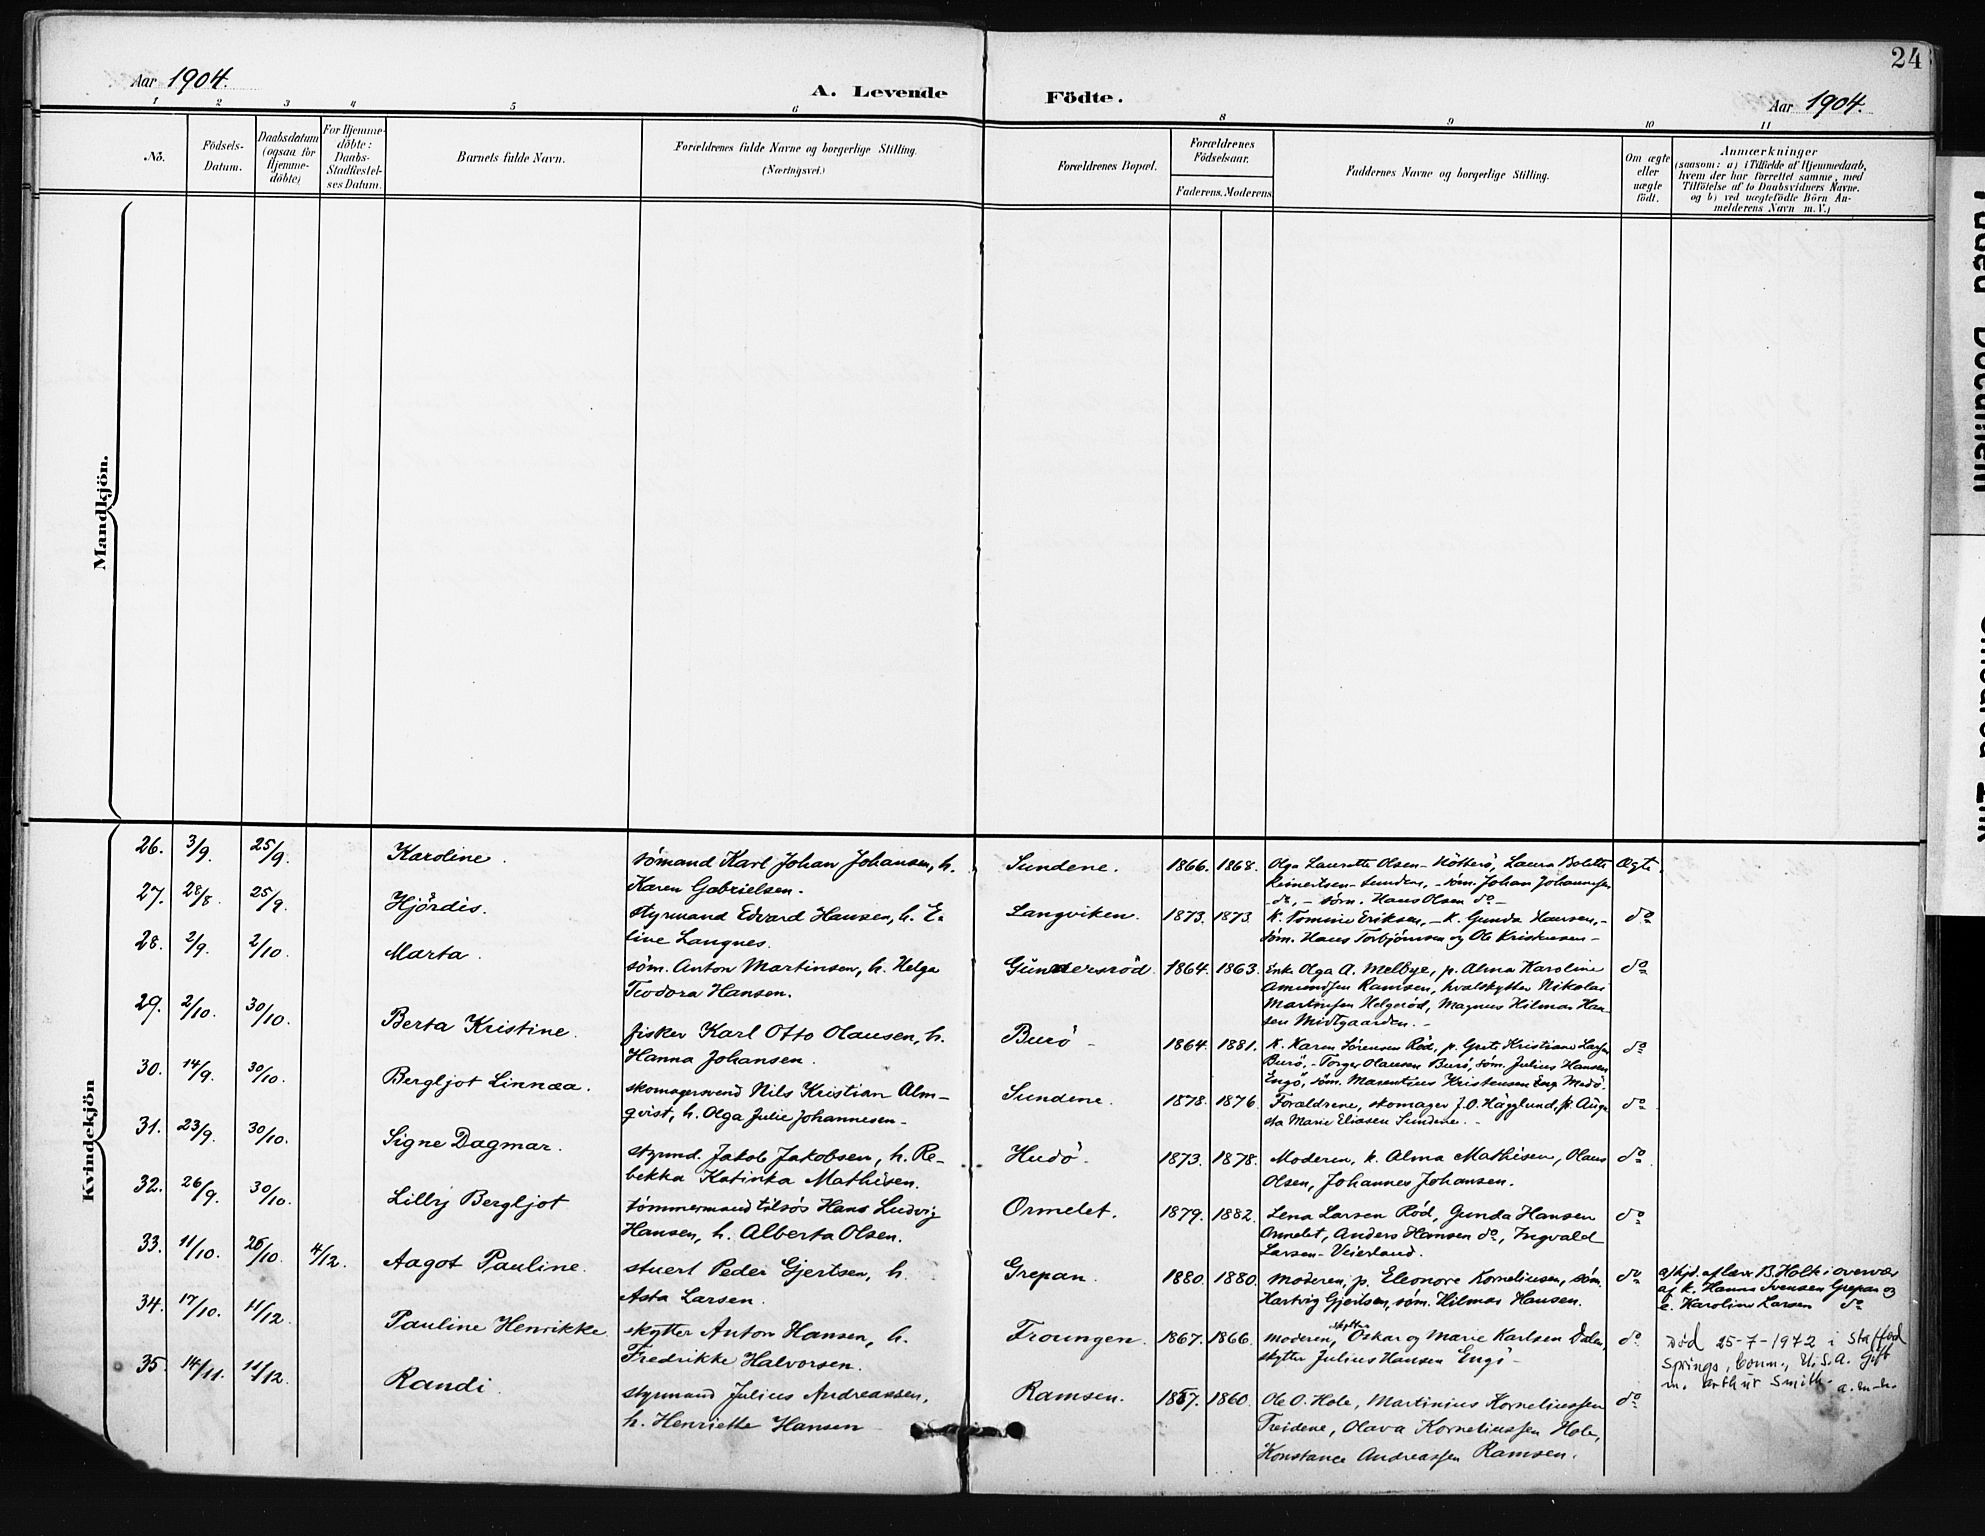 24
Aar 1904.
A. Levende Födte.
Aar 1904.
1 2 3 4 5 6 8 9 10 11
No.
Födsels-
Datum.
Daabsdatum
(ogsaa for
Hjemme-
döbte)
For Hjemme-
döbte:
Daabs-
Stadfæstel-
ses Datum.
Barnets fulde Navn.
Forældrenes fulde Navne og borgerlige Stilling.
(Næringsvei.)
Forældrenes Bopæl.
Forældrenes
Födselsaar.
Faderens. Moderens
Faddernes Navne og borgerlige Stilling.
Om ægte
eller
uægte
födt.
Anmærkninger
(saasom: a) i Tilfælde af Hjemmedaab,
hvem der har forrettet samme, med
Tilföielse af to Daabsvidners Navne.
og b) ved uægtefödte Börn An-
melderens Navn m.V.)
Mandkjön.
Kvindekjön
26. 3/9. 25/9. Karoline. sømand Karl Johan Johansen, h.
Karen Gabrielsen.
Sundene. 1866. 1868. Olga Laurette Olsen Laura Bolette
Reinertsen - Sundene, - søm. Johan Johannesen
do, - søm. Hans Olsen do -
Ægte.
27. 28/8. 25/9. Hjördis. styrmand Edvard Hansen, h. E-
line Langnes.
Langviken. 1873. 1873. k. Tomine Eriksen, - k. Gunda Hansen, -
søm. Hans Torbjørnsen og Ole Kristensen -
do
28. 2/9. 2/10. Marta. søm. Anton Martinsen, h. Helga
Teodora Hansen.
Gunnersrød. 1864. 1863. Enk. Olga A. Melbye, p. Alma Karoline
Amundsen Ramsen, hvalskytter Nikolai
Martinsen Helgerød, Magnus Hilmar Han-
sen Midtgaarden. -
do
29. 2/10. 30/10. Berta Kristine. fisker Karl Otto Olausen, h.
Hanna Johansen.
Burö - 1864. 1881. k. Karen Sørensen Rød, p. Grete Kristiane Larsen
Burö, - Torger Olausen Burö, søm. Julius Hansen
Engö, søm. Marentius Kristensen Eng Medö.
do
30. 14/9. 30/10. Bergljot Linnæa. skomagersvend Nils Kristian Alm-
qvist, h. Olga Julie Johannesen -
Sundene. 1878. 1876. Forældrene, skomager J.O. Hägglund, p. Augu-
sta Marie Eliasen Sundene. -
do
31. 23/9. 30/10. Signe Dagmar. styrmd. Jakob Jakobsen, h. Re-
bekka Katinka Mathisen.
Hudö. 1873. 1878. Moderen, k. Alma Mathisen, Olaus
Olsen, Johannes Johansen.
do
32. 26/9. 30/10. Lilly Bergljot tømmermand tilsøs Hans Ludvig
Hansen, h. Alberta Olsen.
Ormelet. 1879. 1882. Lena Larsen Rød, Gunda Hansen
Ormelet, Anders Hansen do, Ingvald
Larsen - Veierland.
do
33. 11/10. 26/10. 4/12. Aagot Pauline. stuert Peder Gjertsen, h.
Asta Larsen.
Grepan. 1880. 1880. Moderen, p. Eleonore Korneliussen, søm.
Hartvig Gjertsen, søm. Hilmar Hansen.
do
af hjd. af lærer B. Holk i overvær
af k. Hanna Svensen Grepan og
e. Karoline Larsen do
34. 17/10. 11/12. Pauline Henrikke skytter Anton Hansen, h.
Fredrikke Halvorsen.
Froungen. 1867. 1866. Moderen, skytter Oskar og Marie Karlsen Dalen,
skytter Julius Hansen Engö -
do
Død 25-7-1972 i Stafford
Springs, Conn., U.S.A. Gift
m. Arthur Smith.
35. 14/11. 11/12. Randi. styrmand Julius Andreassen,
h. Henriette Hansen
Ramsen. 1857. 1860. Ole O. Hole, Martinius Korneliussen
Treidene, Olava Korneliussen Hole,
Konstance Andreassen Ramsen.
do